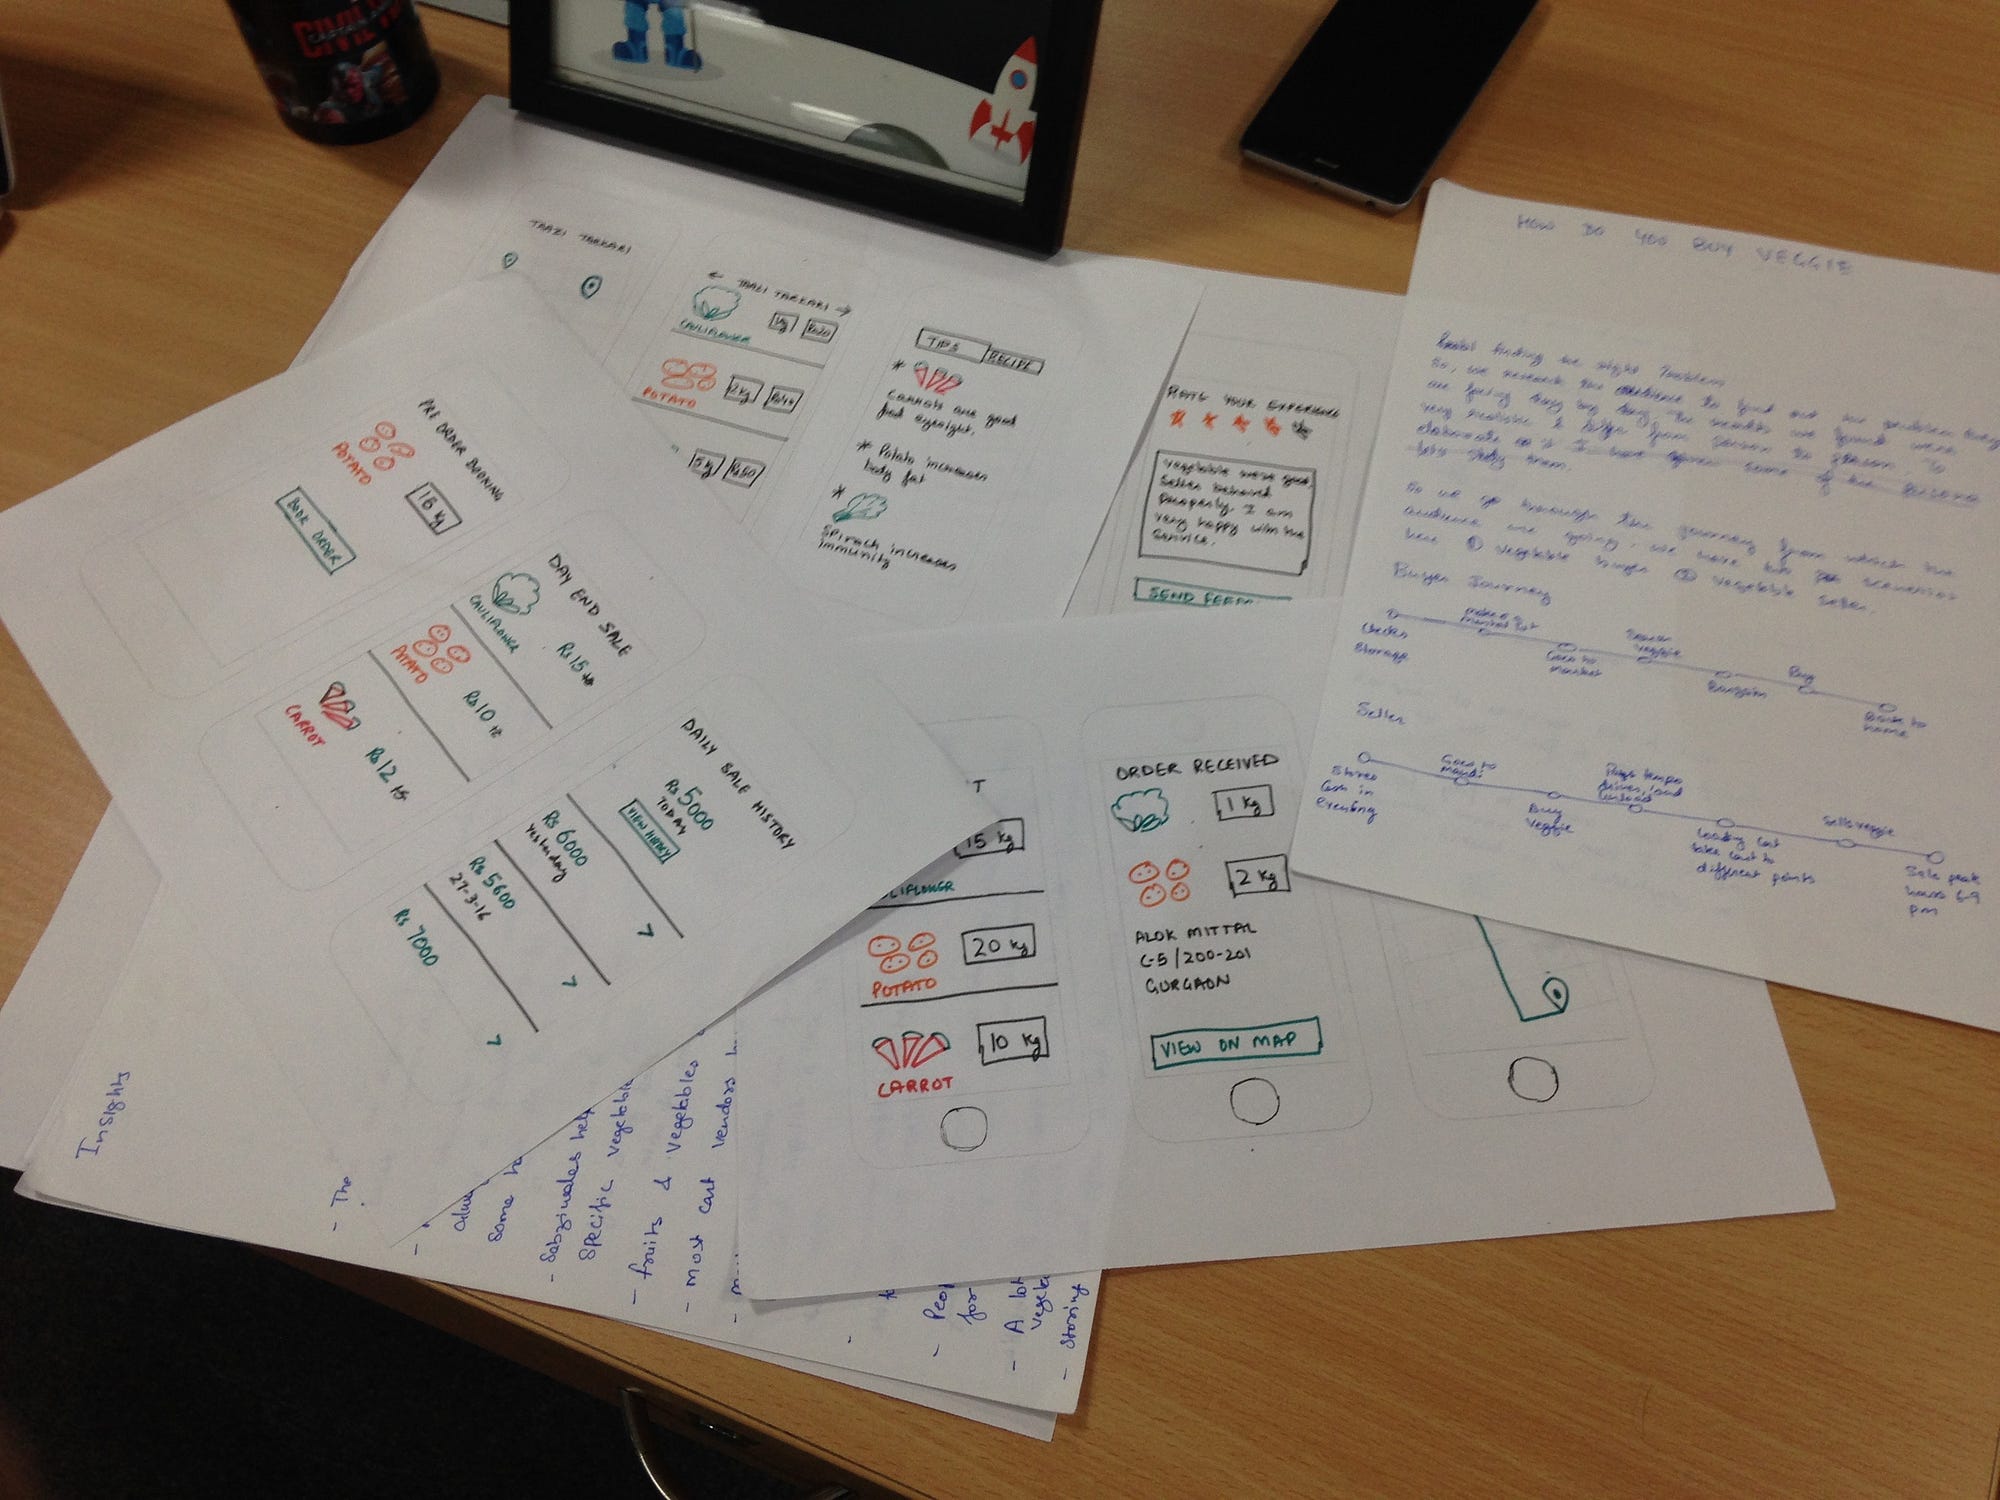 CIVIL
CAPTAIN
TAAZI TARKARI
← TAAZI TARKARI →
CAULIFLOWER
1 kg
Rs 20
POTATO
2 kg
5 kg
Rs 50
TIPS
RECIPE
* Carrots are good
for eyesight.
* Potato increases
body fat
*
Spinach increases
immunity
RATE YOUR EXPERIENCE
Vegetable were good,
Seller behaved
properly I am
very happy with the
service.
SEND FEED
HOW DO YOU BUY VEGGIE
finding the right Problem
So, we research the audience to find out the problem they
are facing day by day. The results we found were
very realistic & differ from person to person. To
elaborate it I have given some of the persona
let's study them.
So we go through the journey from which the
audience are going. We have two scenarios
here ① Vegetable buyer ② Vegetable seller.
Buyer Journey
Checks
Storage
Goes to
market
Search
Veggie
Bargain
Buy
Back to
home
Seller
Stores
Cash in
evening
Goes to
mandi
Buy
Veggie
Pays tempo
driver, load
unload
Loading cart
take cart to
different points
Sells veggie
Sale peak
hours 6-9
pm
PRE ORDER BOOKING
POTATO
15 kg
BOOK ORDER
DAY END SALE
CAULIFLOWER
Rs 15
POTATO
Rs 10
CARROT
Rs 12
DAILY SALE HISTORY
Rs 5000
TODAY
VIEW HISTORY
Rs 6000
Yesterday
Rs 5600
27-3-16
Rs 7000
T
15 kg
LIFLOWER
POTATO
20 kg
CARROT
10 kg
ORDER RECEIVED
1 kg
2 kg
ALOK MITTAL
C-5/200-201
GURGAON
VIEW ON MAP
Insights
- The
some
- Sabziwales help
Specific vegetable
- fruits & vegetables
- most cart vendors
- Peop
for
- A lot
vegeta
- Storing